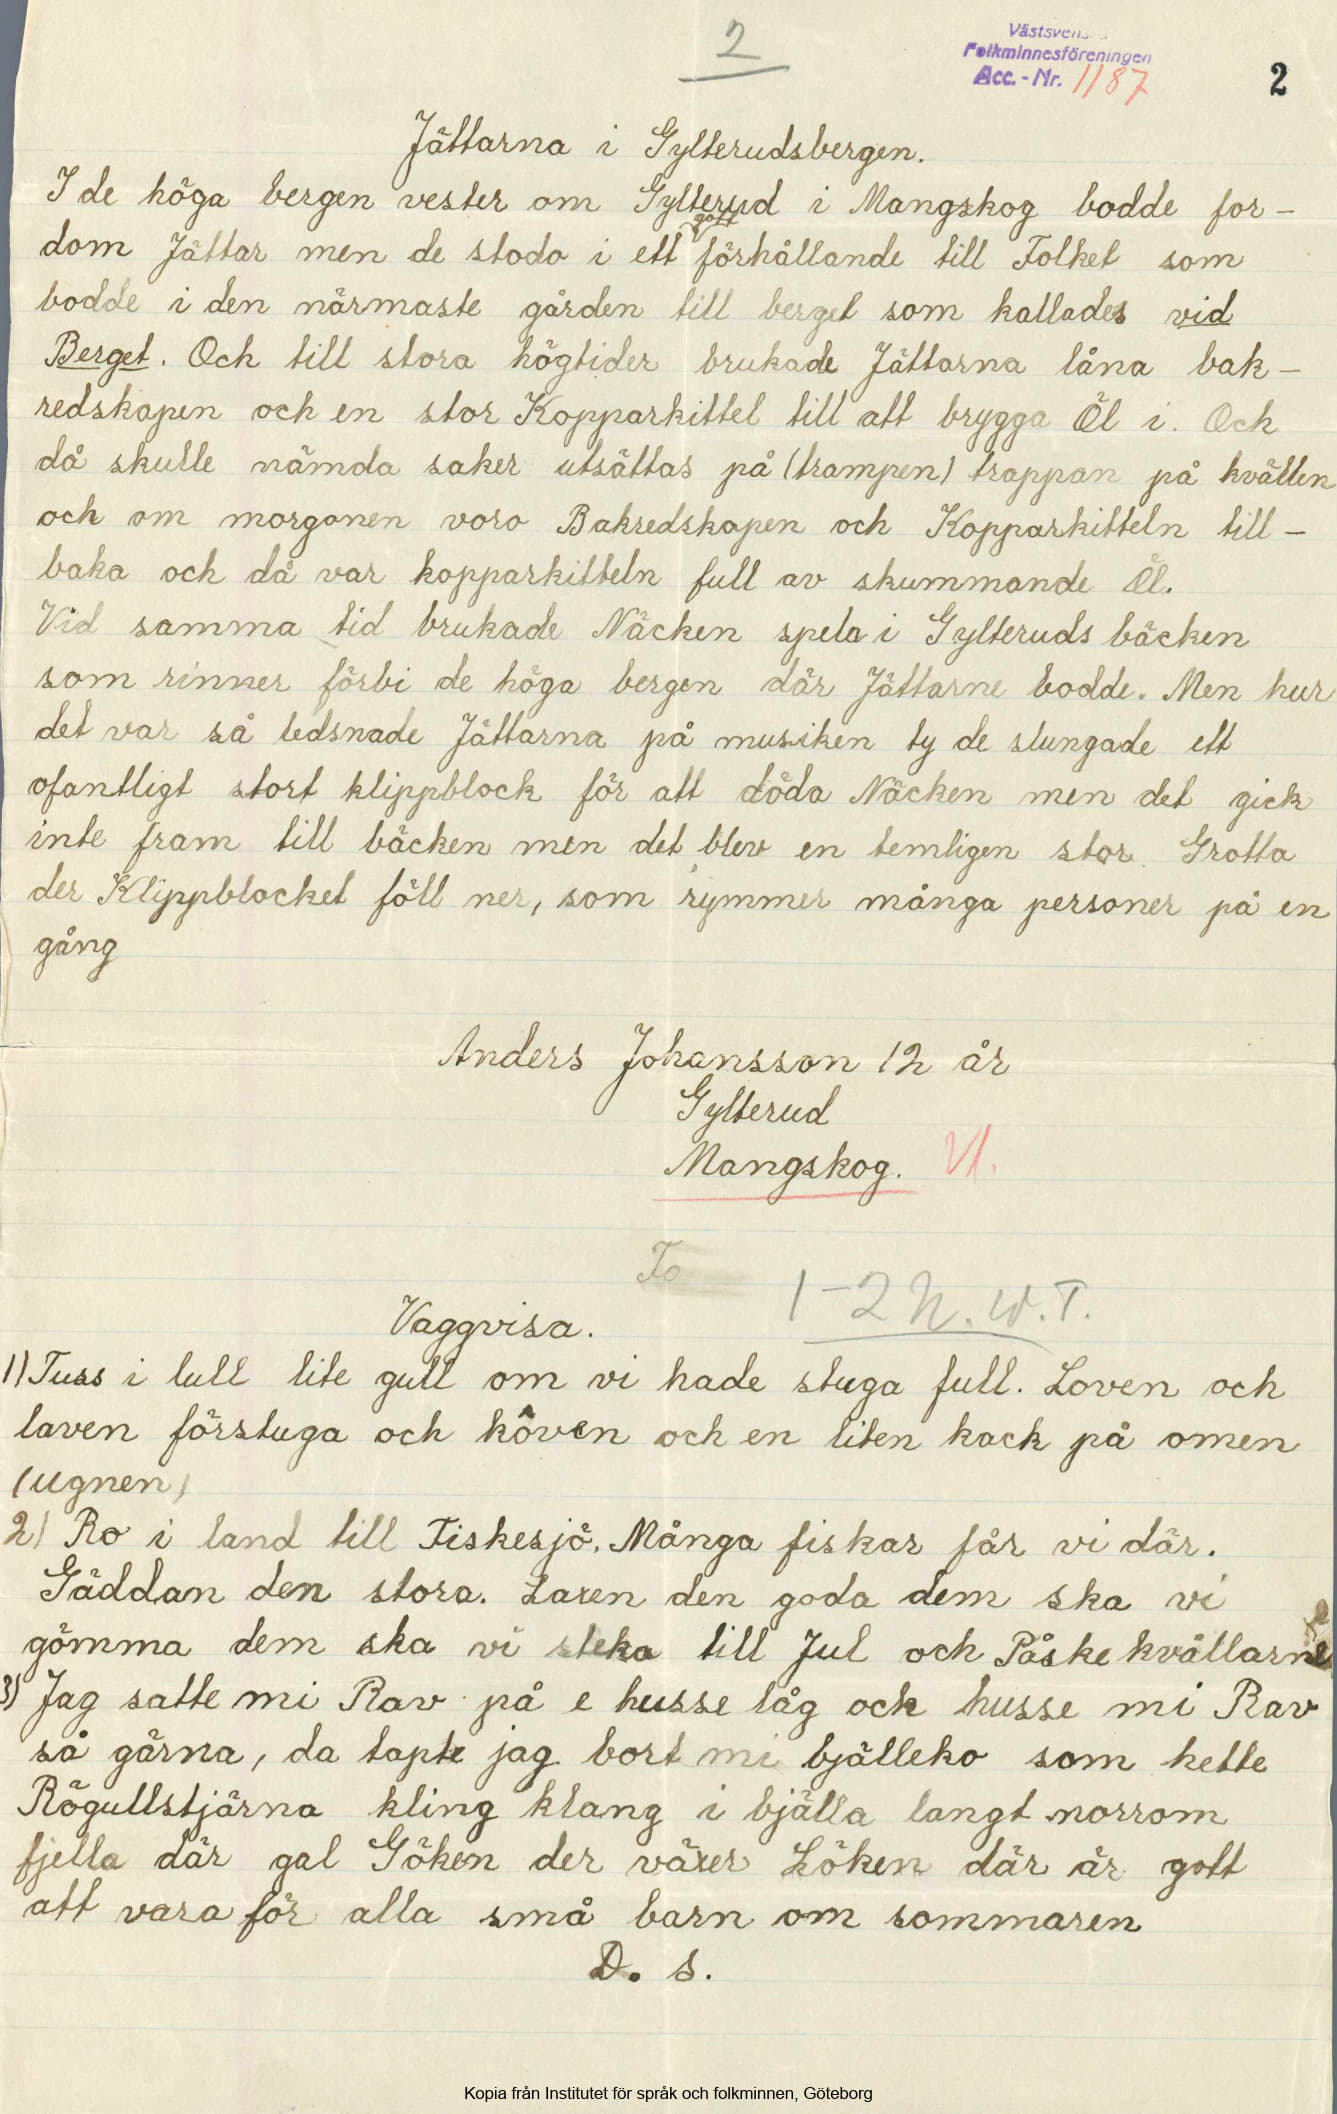 2
Västsvenska
Folkminnesföreningen
Acc.-Nr. 1187
2
Jättarna i Gylterudsbergen.
I de höga bergen vester om Gylterud i Mangskog bodde for-
dom Jättar men de stodo i ett gott förhållande till Folket som
bodde i den närmaste gården till berget som kallades vid
Berget. Och till stora högtider brukade Jättarna låna bak-
redskapen och en stor Kopparkittel till att brygga Öl i. Och
då skulle nämda saker utsättas på (trampen) trappan på kvällen
och om morgonen voro Bakredskapen och Kopparkitteln till-
baka och då var kopparkitteln full av skummande Öl.
Vid samma tid brukade Näcken spela i Gylteruds bäcken
som rinner förbi de höga bergen där Jättarne bodde. Men hur
det var så ledsnade Jättarna på musiken ty de slungade ett
ofantligt stort klippblock för att döda Näcken men det gick
inte fram till bäcken men det blev en temligen stor Grotta
der Klippblocket föll ner, som rymmer många personer på en
gång
Anders Johansson 12 år
Gylterud
Mangskog. VI.
Fo
1-2 N.W.T.
Vaggvisa.
1) Tuss i lull lite gull om vi hade stuga full. Loven och
laven förstuga och köven och en liten kack på omen
(ugnen)
2) Ro i land till Fiskesjö. Många fiskar får vi där.
Gäddan den stora. Laxen den goda dem ska vi
gömma dem ska vi steka till Jul och Påske kvällarne
3) Jag satte mi Rav på e husse låg ock husse mi Rav
så gärna, da tapte jag bort mi bjälleko som hette
Rögullstjärna kling klang i bjälla langt norrom
fjella där gal Göken der växer Löken där är gott
att vara för alla små barn om sommaren
D. S.
Kopia från Institutet för språk och folkminnen, Göteborg